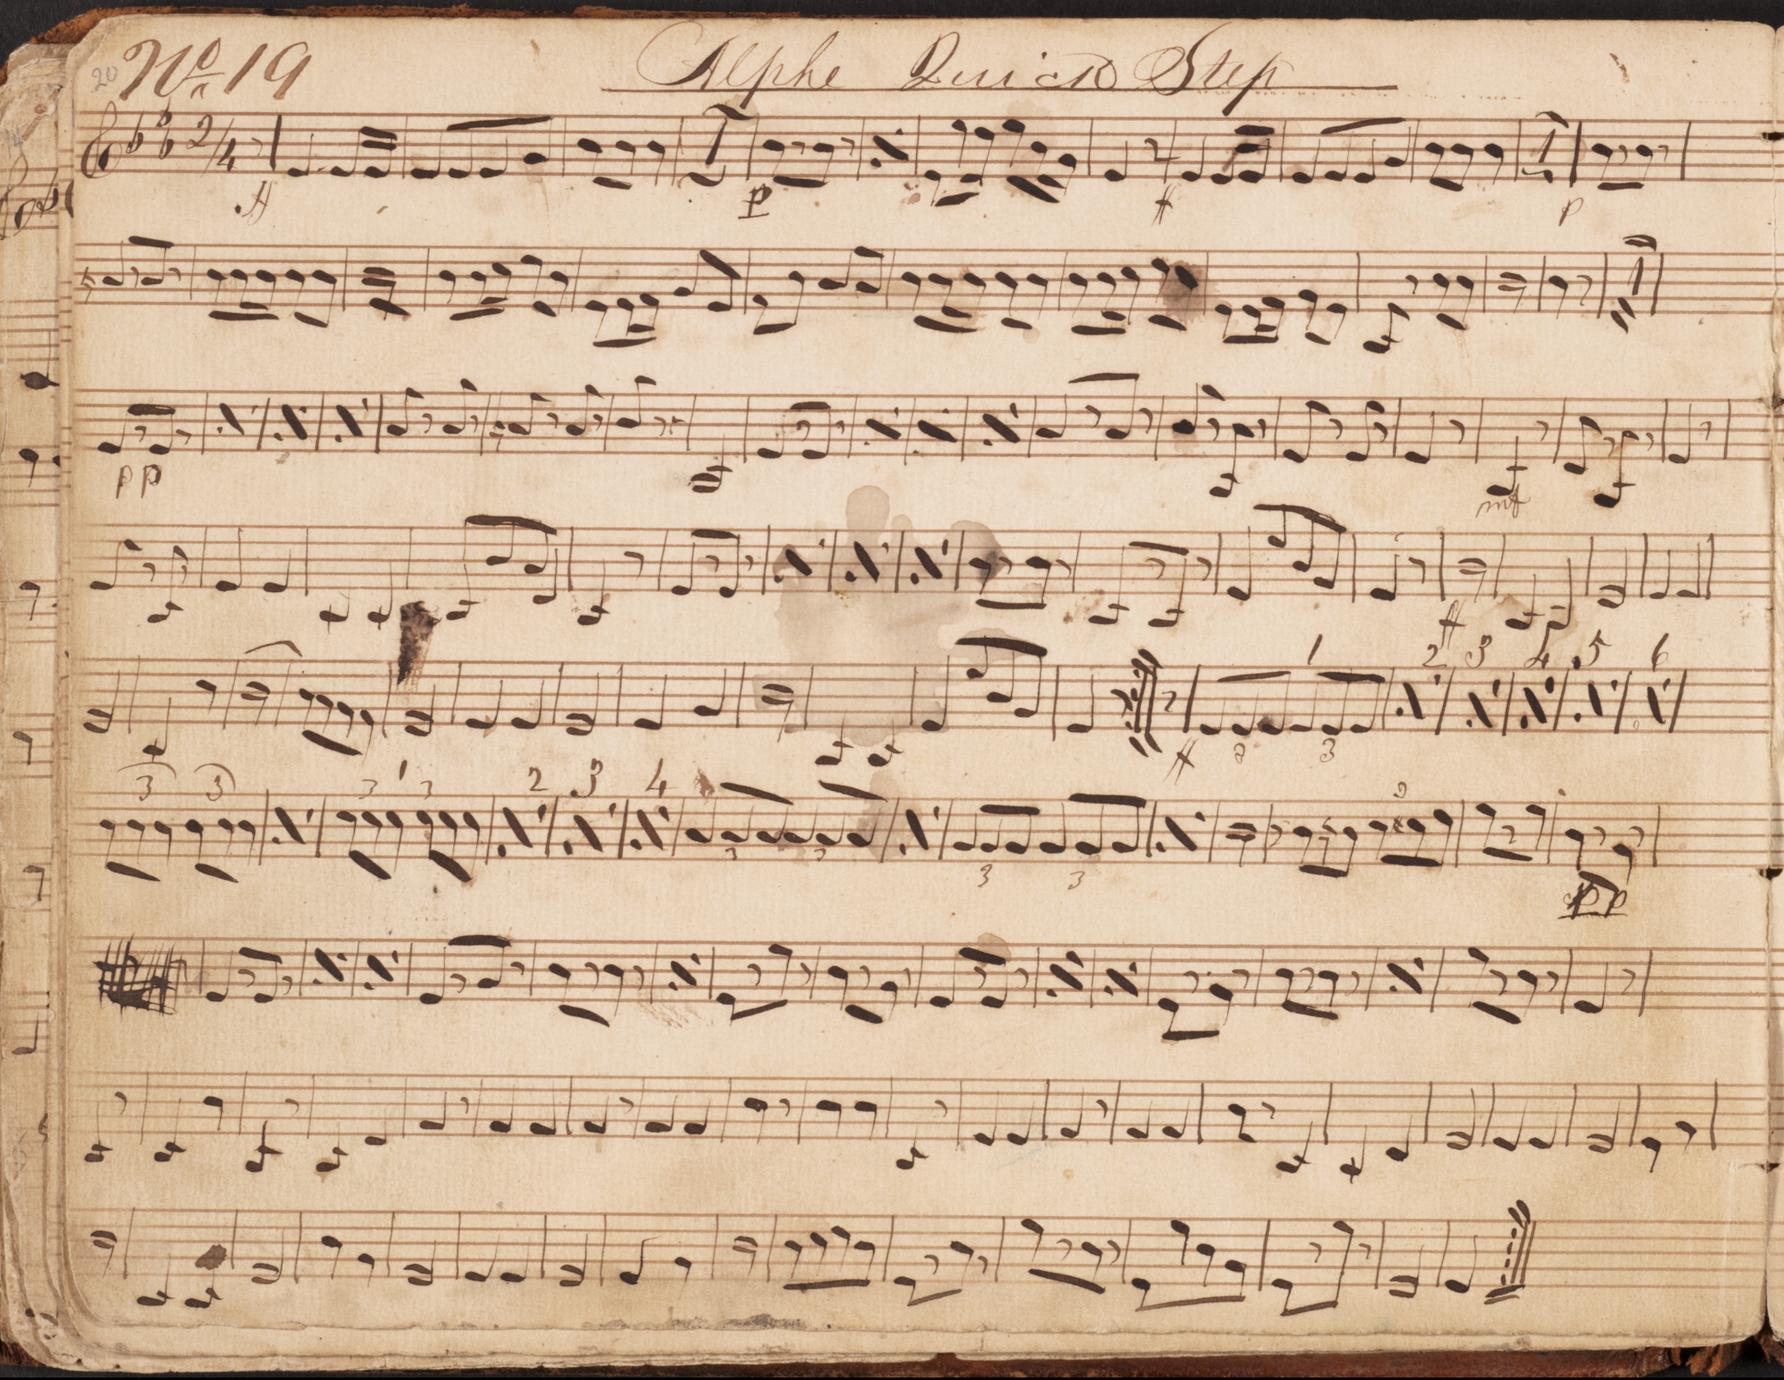 20 No 19 Alphe Quick Step
2/4
ff p ff p
pp mf
ff
1 2 3 4 5 6
ff 3 3
3 3 3 1 3 2 3 4 3
3 3 3 3
pp